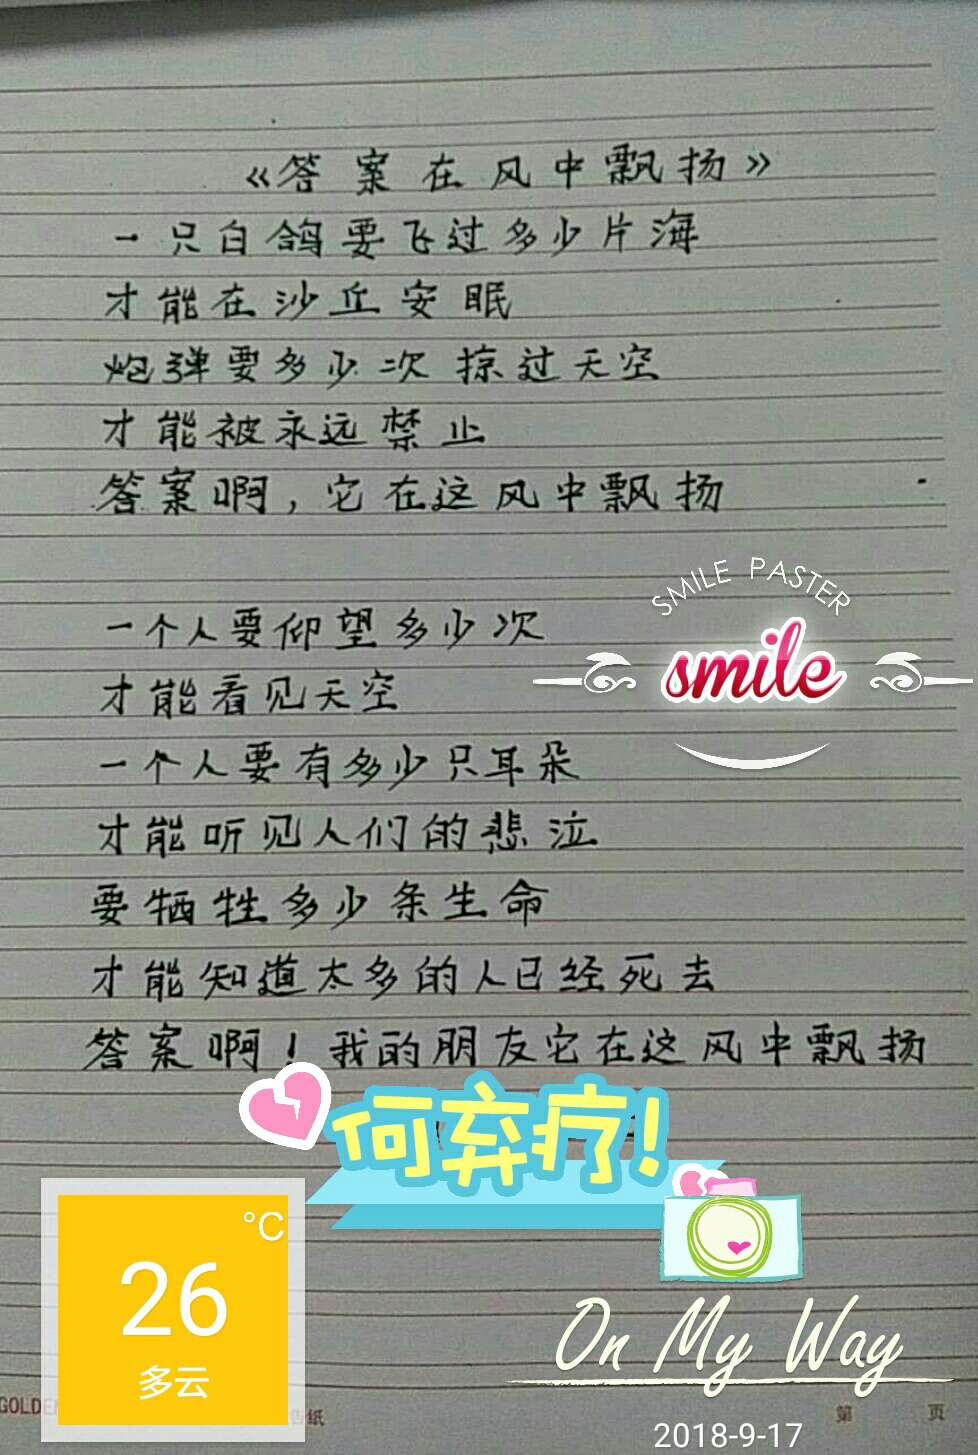 《答案在风中飘扬》
一只白鸽要飞过多少片海
才能在沙丘安眠
炮弹要多少次掠过天空
才能被永远禁止
答案啊，它在这风中飘扬
一个人要仰望多少次
才能看见天空
一个人要有多少只耳朵
才能听见人们的悲泣
要牺牲多少条生命
才能知道太多的人已经死去
答案啊！我的朋友它在这风中飘扬
SMILE PASTER
smile
何弃疗!
°C
26
多云
On My Way
2018-9-17
GOLDE
告纸
第 页